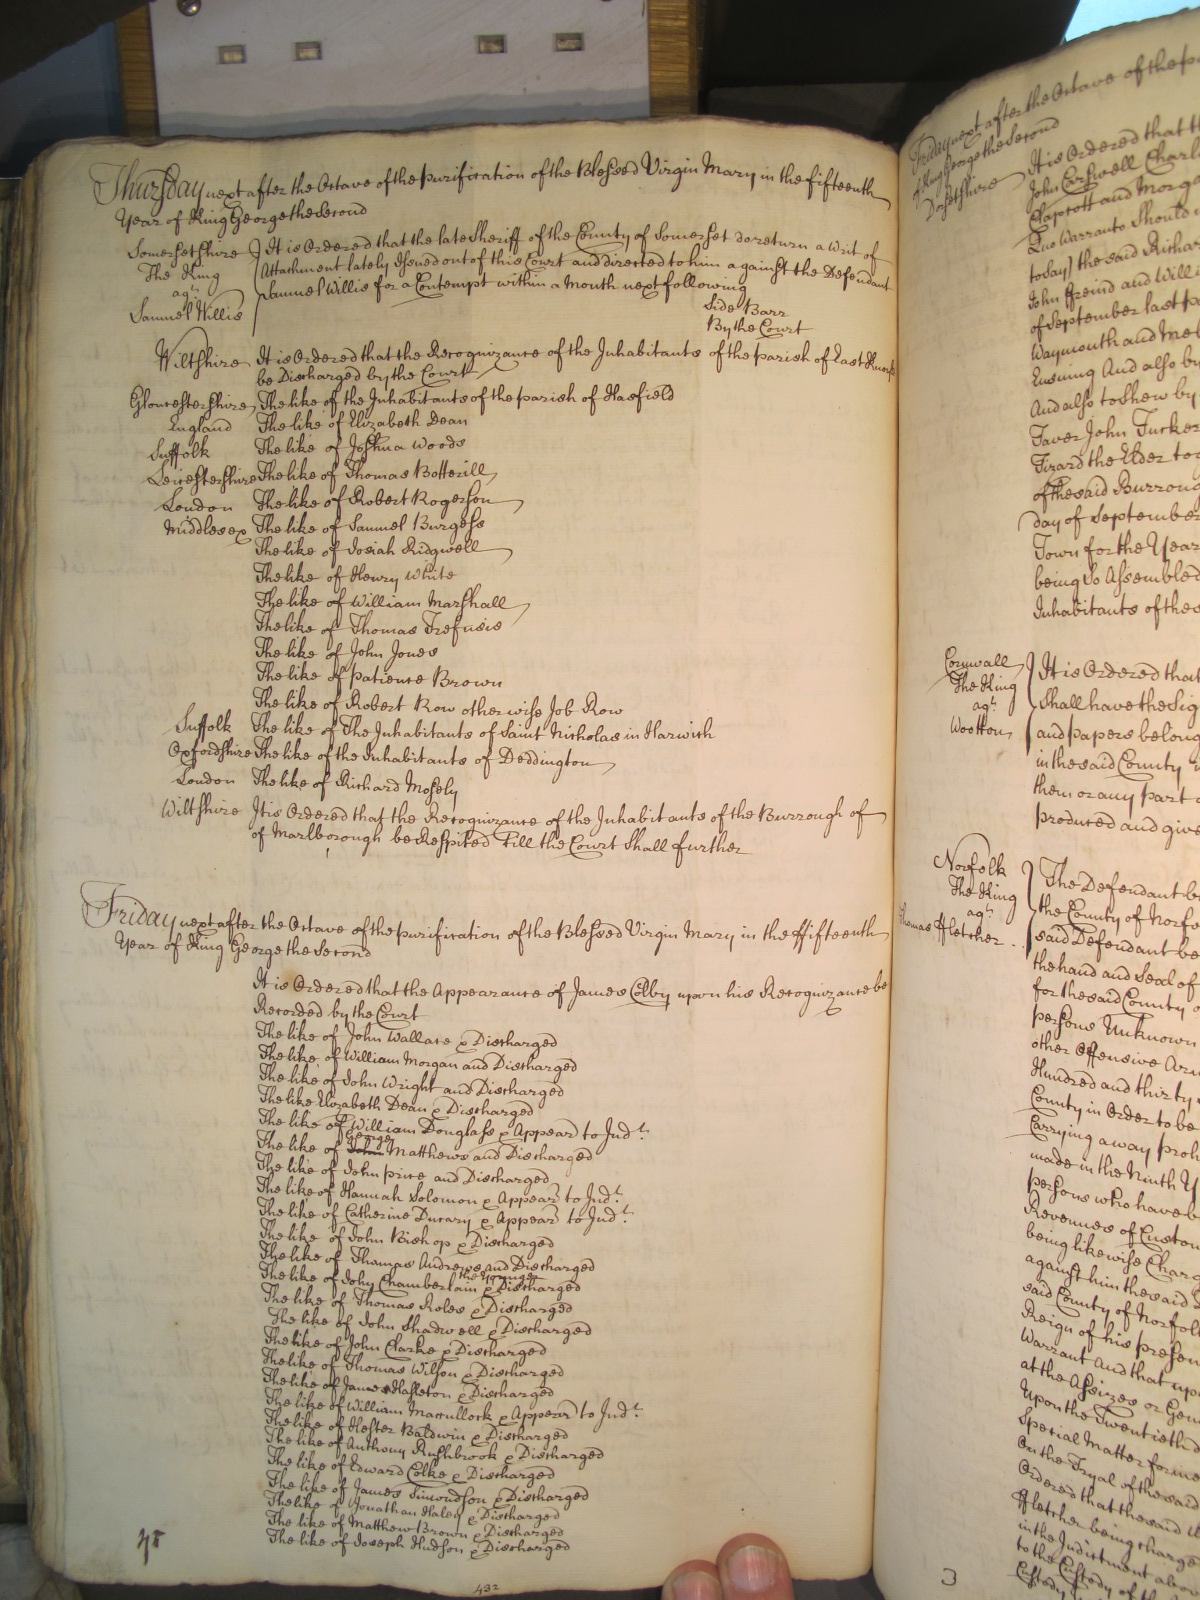 Thursday next after the Octave of the purification of the Blessed Virgin Mary in the fifteenth
Year of King George the Second
Somersetshire
The King
agt
Samuel Willis
It is Ordered that the late Sheriff of the County of Somerset do return a Writ of
Attachment lately Issued out of this Court and directed to him against the Defendant
Samuel Willis for a Contempt within a Month next following
Side Barr
By the Court
Wiltshire It is Ordered that the Recognizance of the Inhabitants of the parish of East
be Discharged by the Court
Gloucestershire The like of the Inhabitants of the parish of Hasfield
England The like of Elizabeth Dean
Suffolk The like of Joshua Woods
Leicestershire The like of Thomas Botterill
London The like of Robert Rogerson
Middlesex The like of Samuel Burgess
The like of Josiah Ridgwell
The like of Henry White
The like of William Marshall
The like of Thomas Trefusis
The like of John Jones
The like of patience Brown
The like of Robert Row otherwise Job Row
Suffolk The like of The Inhabitants of Saint Nicholas in Harwich
Oxfordshire The like of the Inhabitants of Deddington
London The like of Richard Mosely
Wiltshire It is Ordered that the Recognizance of the Inhabitants of the Burrough of
of Marlborough be Respited till the Court Shall further
Friday next after the Octave of the purification of the Blessed Virgin Mary in the ffifteenth
Year of King George the Second
It is Ordered that the Appearance of James Colby upon his Recognizance be
Recorded by the Court
The like of John Wallace & Discharged
The like of William Morgan and Discharged
The like of John Wright and Discharged
The like Elizabeth Dean & Discharged
The like of William Douglass & Appear to Judt
The like of George Matthews and Discharged
The like of John price and Discharged
The like of Hannah Solomon & Appear to Judt
The like of Catherine Ducary & Appear to Judt
The like of John Bishop & Discharged
The like of Thomas Andrews and Discharged
The like of John Chamberlain the Younger & Discharged
The like of Thomas Roles & Discharged
The like of John Shadwell & Discharged
The like of John Clarke & Discharged
The like of Thomas Wilson & Discharged
The like of James Hasleton & Discharged
The like of William Maccullock & Appear to Judt
The like of Hester Baldwin & Discharged
The like of Anthony Rushbrook & Discharged
The like of Edward Colke & Discharged
The like of James Simondson & Discharged
The like of Jonathan Hales & Discharged
The like of Matthew Brown & Discharged
The like of Joseph Hudson & Discharged
432
Friday next after the Octave of the
of King George the Second
Dorsetshire
It is Ordered that
John Carswell
Claprott and Morga
Quo Warranto Should
today) the said Richar
John ffreind and Willi
of September last
Waymouth and Mel
Ensuing And also by
And also to shew by
Taver John Tucker
Tizard the Elder to
of the said Burroug
day of September
Town for the Year
being So Assembled
Inhabitants of the
Cornwall
The King
agt
Wootton
It is Ordered that
Shall have the
and papers belong
in the said County
them or any part
produced and give
Norfolk
The King
agt
Thomas ffletcher
The Defendant
the County of Norfo
said Defendant be
the hand and Seal of
for the said County
persons Unknown
other Offensive Arm
Hundred and thirty
County in Order to be
Carrying away proh
made in the Ninth Y
persons who have
Revenues of Custom
being likewise Charg
against him the said
said County of Norfol
Reign of his presen
Warrant And that upo
at the Assizes or Gen
Upon the Twentieth
Special Matter forme
On the Tryal of the said
Ordered that the said
ffletcher being charge
in the Indictment above
to the Custody of the
Custody
3